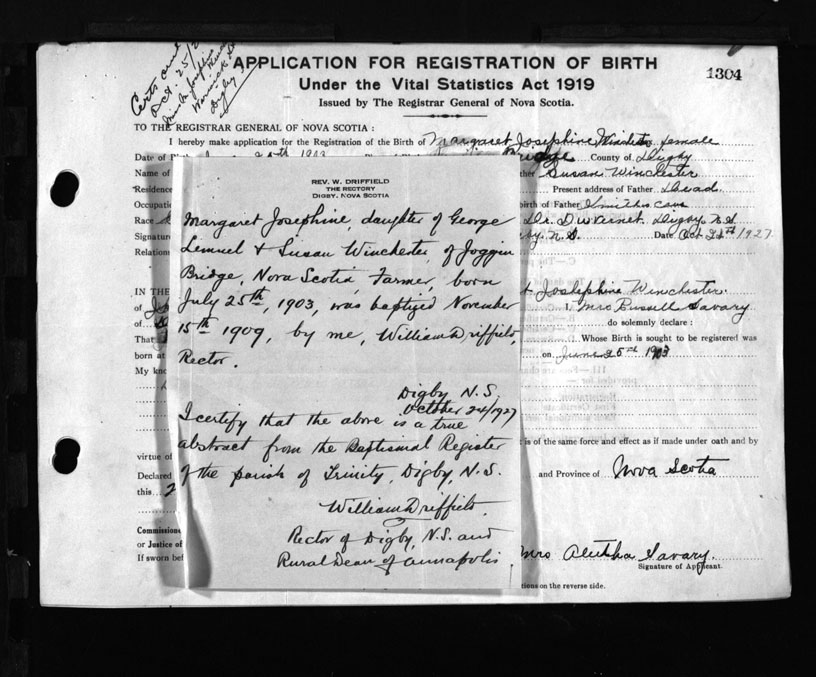 Certs and
Oct. 25/2
Digby
APPLICATION FOR REGISTRATION OF BIRTH
1304
Under the Vital Statistics Act 1919
Issued by The Registrar General of Nova Scotia.
TO THE REGISTRAR GENERAL OF NOVA SCOTIA:
I hereby make application for the Registration of the Birth of Margaret Josephine Winchester female
Date of County of Digby
Name of Susan Winchester
Residence Present address of Father Dead
Occupati birth of Father Smiths Cove
Race Digby N.S
Signature N.S. Date Oct 1927
Relation
REV. W. DRIFFIELD
THE RECTORY
DIGBY, NOVA SCOTIA
Margaret Josephine, daughter of George
Lemuel & Susan Winchester, of Joggin
Bridge, Nova Scotia, Farmer, born
July 25th, 1903, was baptized November
15th 1909, by me, William Driffield,
Rector.
Digby N.S.
October 24/1927
I certify that the above is a true
abstract from the Baptismal Register
of the parish of Trinity, Digby, N.S.
William Driffield.
Rector of Digby, N.S. and
Rural Dean of Annapolis
IN THE Josephine Winchester
of I, Mrs Russell Savary
of do solemnly declare:
That Whose Birth is sought to be registered was
born at on June 25th 1903
My kno
is of the same force and effect as if made under oath and by
virtue of
Declared and Province of Nova Scotia
this 2
Commissione
or Justice of Mrs Savary.
If sworn bef Signature of Applicant.
tions on the reverse side.